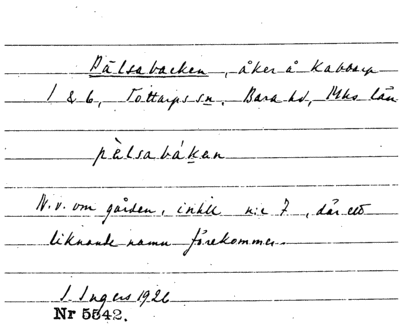 Pälsabacken, åker å Kabbarp
1 & 6, Tottarps sn, Bara hd, Mhs län
pälsabákan
N.v. om gården, intill n:r 7, där ett
liknande namn förekommer.
I. Ingers 1926
Nr 5542.